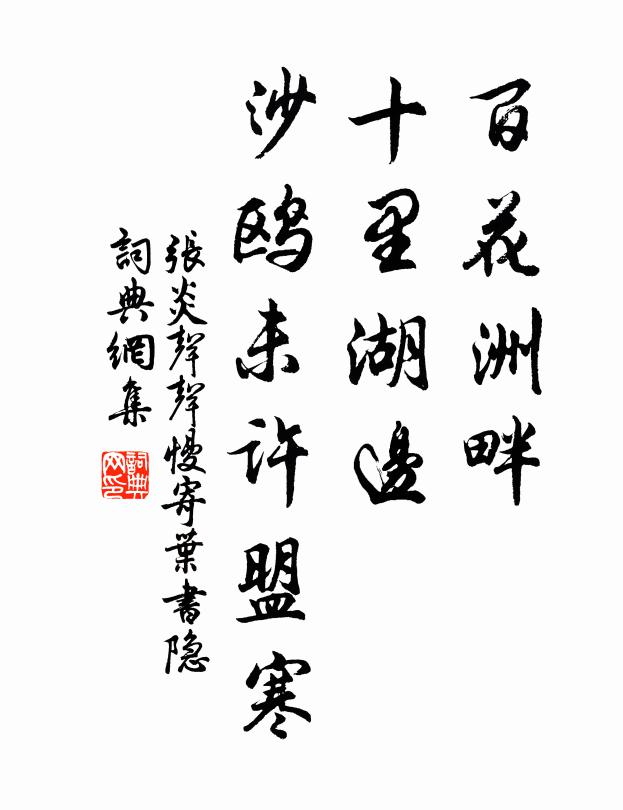 百花洲畔
十里湖邊
沙鸥未许盟寒
張炎聲聲慢寄葉書隐
詞典網集
詞典网印